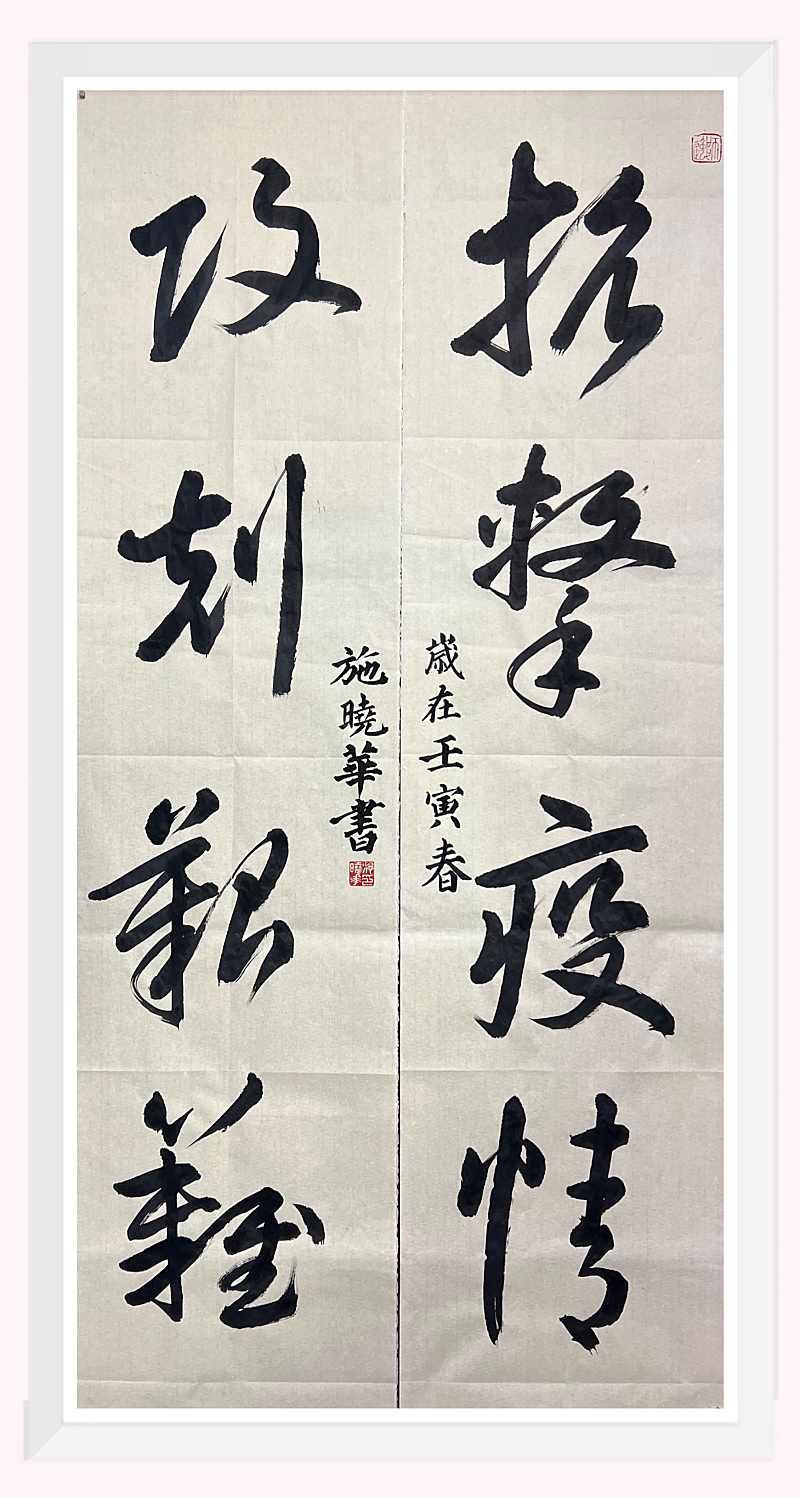 抗擊疫情
攻剋艱難
歲在壬寅春
施曉華書